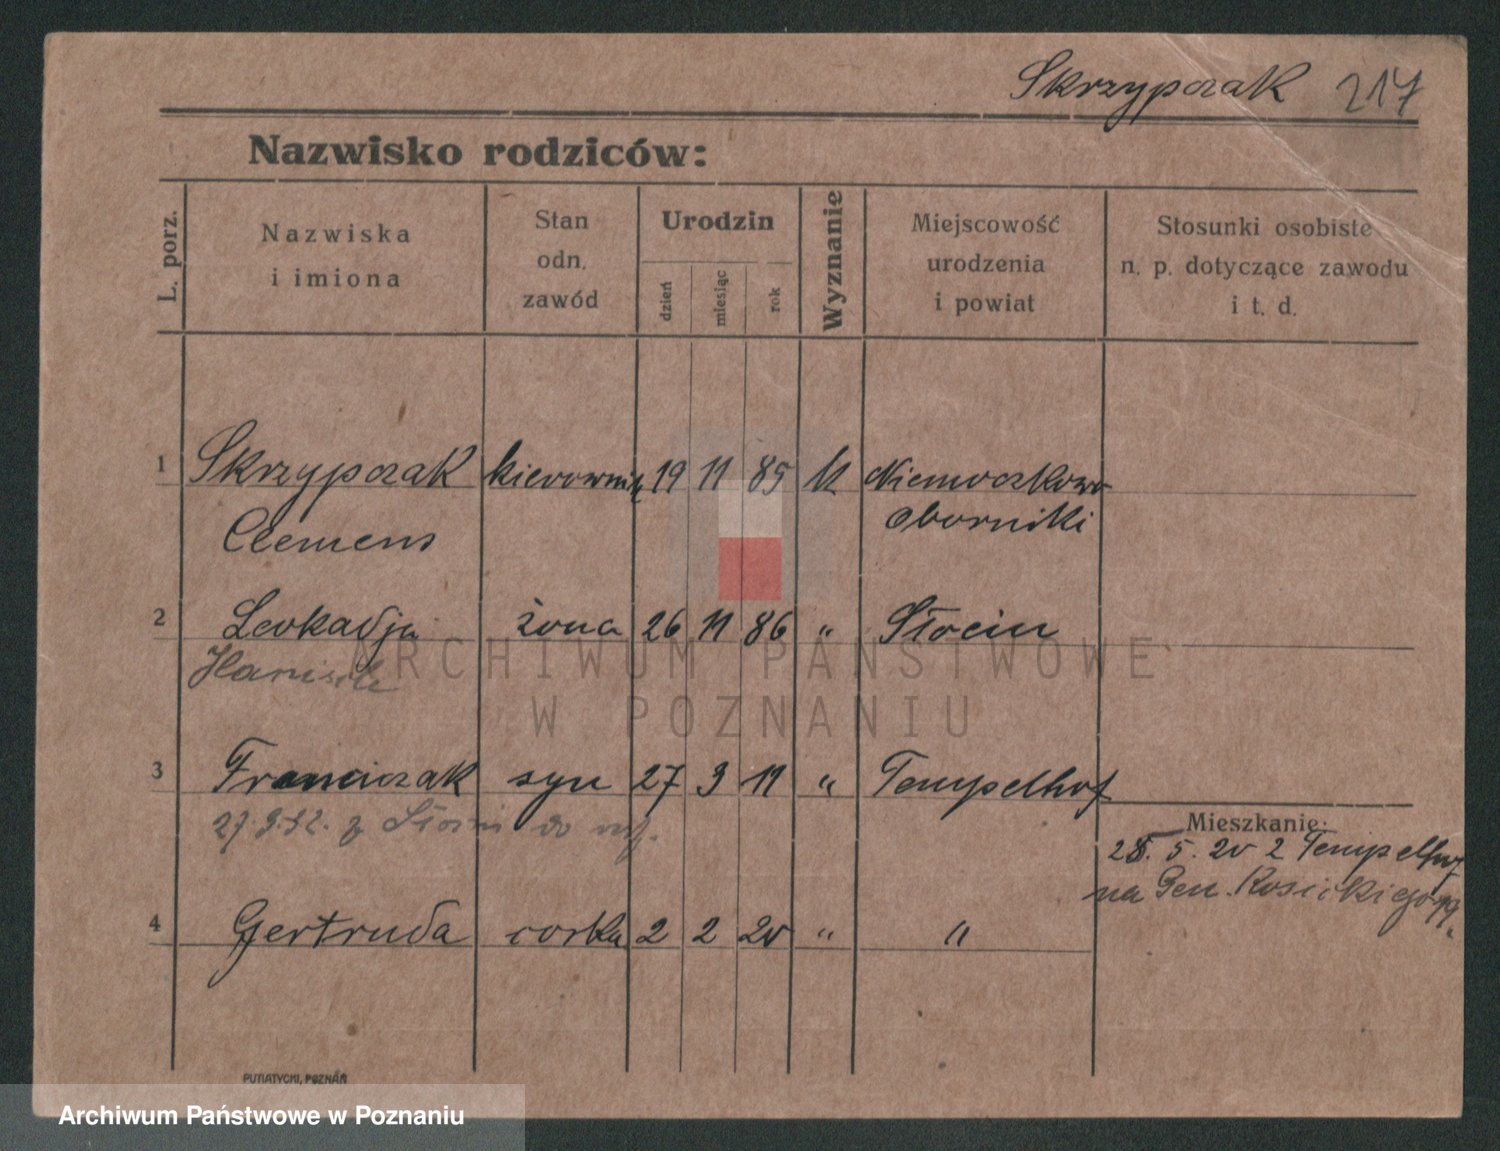 Skrzypczak 217
Nazwisko rodziców:
L. porz.
Nazwiska
i imiona
Stan
odn.
zawód
Urodzin
dzień
miesiąc
rok
Wyznanie
Miejscowość
urodzenia
i powiat
Stosunki osobiste
n. p. dotyczące zawodu
i t. d.
1 Skrzypczak kierownik 19 11 85 k Niemieczkowo
Clemens Oborniki
2 Leokadja żona 26 11 86 " Słocin
3 Franciszak syn 27 9 11 " Tempelhof
27.9.32. z do
Mieszkanie:
28. 5. 20 z Tempelhof
na Gen.
4 Gertruda corka 2 2 20 " "
PUTIATYCKI, POZNAŃ
ARCHIWUM PAŃSTWOWE
W POZNANIU
Archiwum Państwowe w Poznaniu